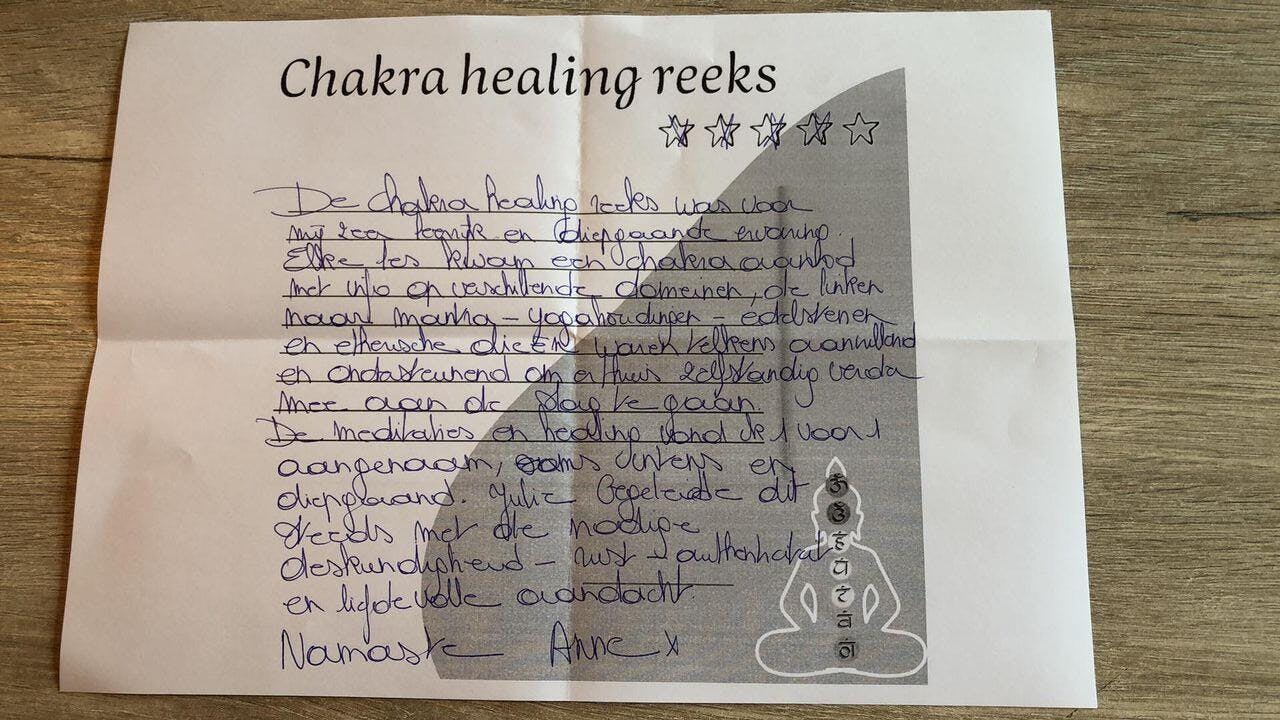 Chakra healing reeks
De chakra healing reeks was voor
mij zeer leerrijk en diepgaande ervaring.
Elke les kwam een chakra aanbod
met info op verschillende domeinen, de linken
naar mantra - yogahoudingen - edelstenen
en etherische oliën waren telkens aanvullend
en ondersteunend om er thuis zelfstandig verder
mee aan de slag te gaan.
De meditaties en healing vond ik 1 voor 1
aangenaam, soms intens en
diepgaand. Julie begeleidde dit
steeds met de nodige
deskundigheid - rust - authenticiteit
en liefdevolle aandacht.
Namaste Anne x